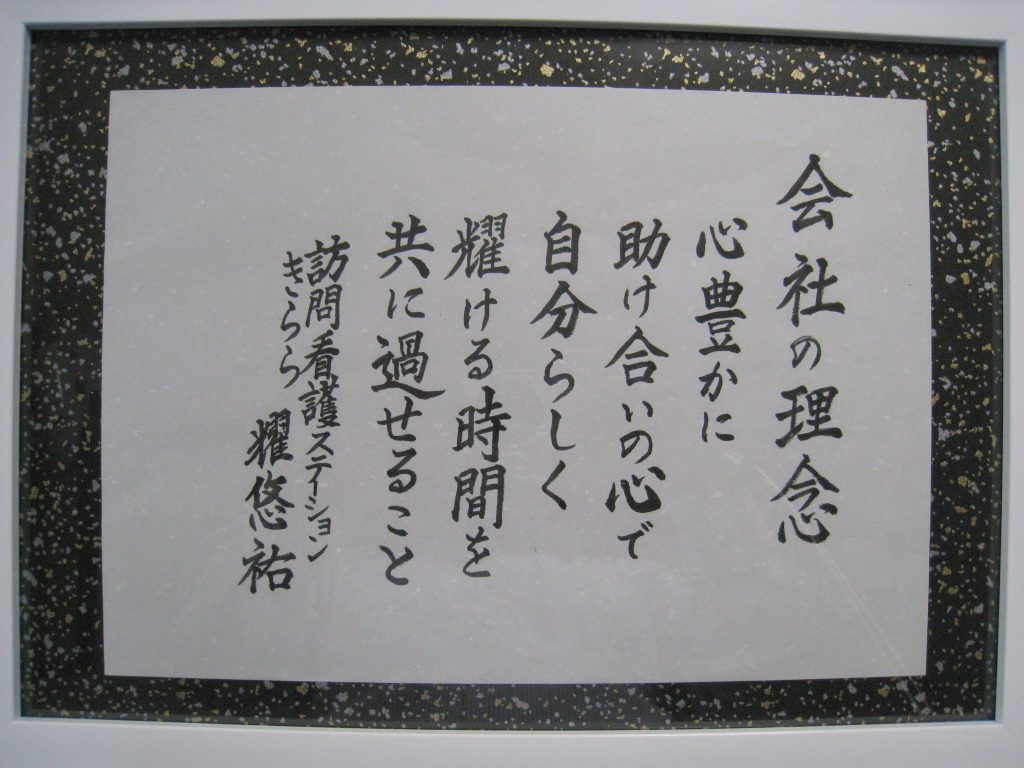 会社の理念
心豊かに
助け合いの心で
自分らしく
耀ける時間を
共に過せること
訪問看護ステイション
きらら 耀悠祐